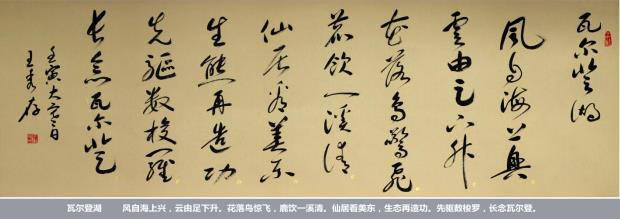 瓦尔登湖
風自海上興
雲由足下升
花落鳥驚飛
鹿飲一溪清
仙居看美东
生態再造功
先驅数梭羅
长念瓦尔登
壬寅大
王
瓦尔登湖 风自海上兴，云由足下升。花落鸟惊飞，鹿饮一溪清。仙居看美东，生态再造功。先驱数梭罗，长念瓦尔登。